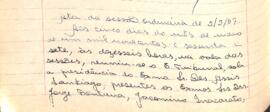 ata da sessão ordinária de 5/5/67.
Aos cinco dias do mês de maio
de um mil novecentos e sessenta e
sete, às dezesseis horas, na sala das
sessões, reuniu-se o E. Tribunal, sob
a presidência do Exmo. Sr. Des. Assis
Santiago, presentes os Exmos. Srs. Des.
Jorge Fontana,